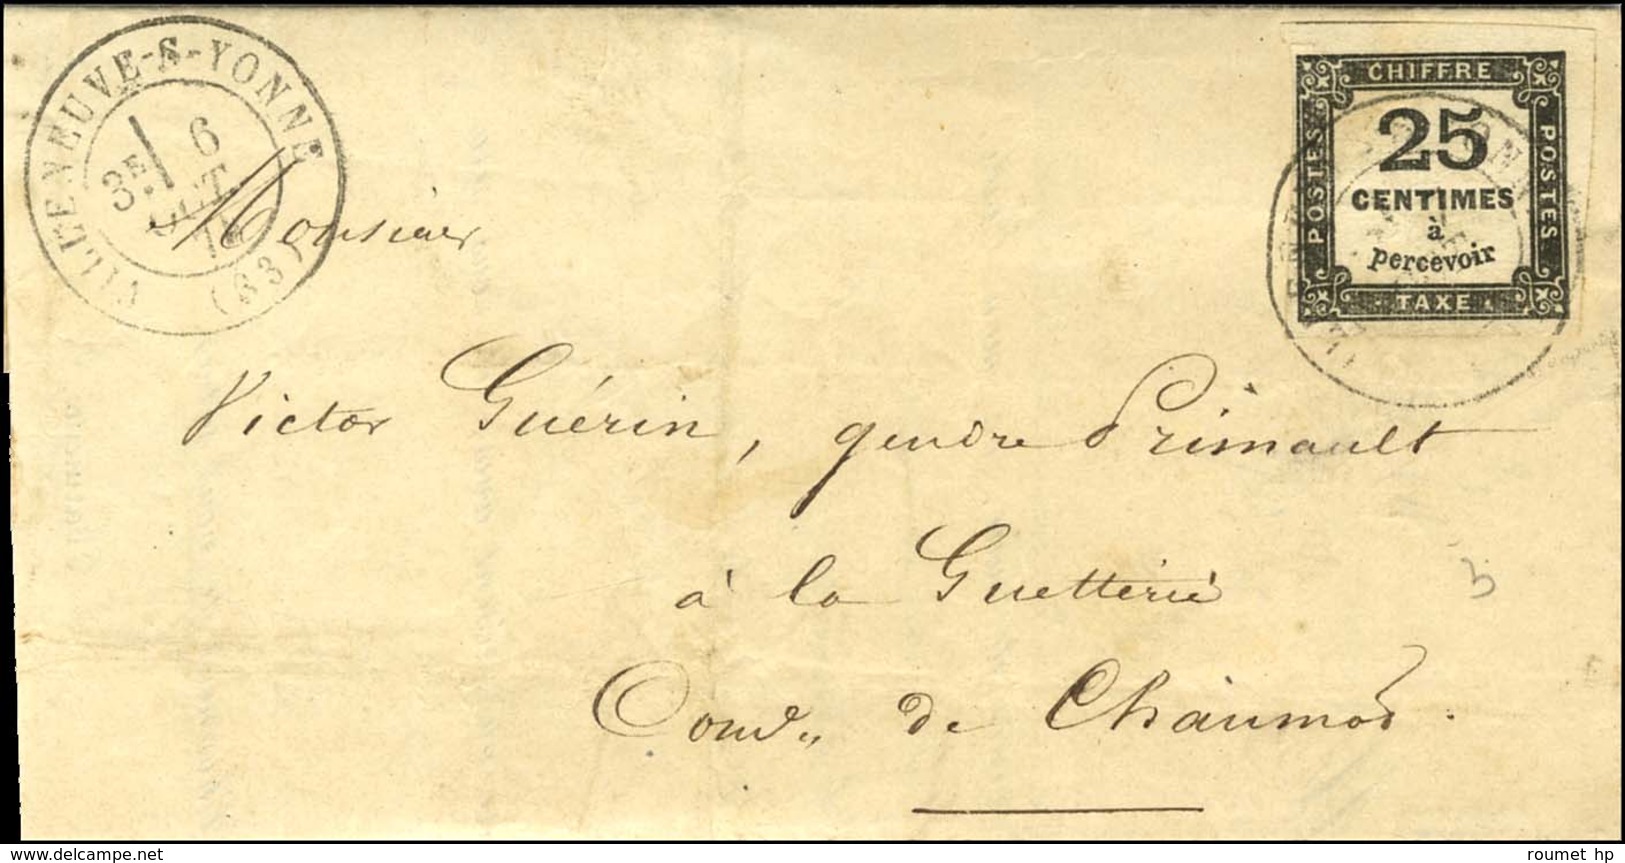 VILLENEUVE-S-YONNE
3E 6
OCT.
(83)
CHIFFRE
POSTES
25
CENTIMES
à
percevoir
POSTES
TAXE
Monsieur
Victor Guérin, gendre Primault
à la Guetterie
de Chaumot.
3
roumet hp